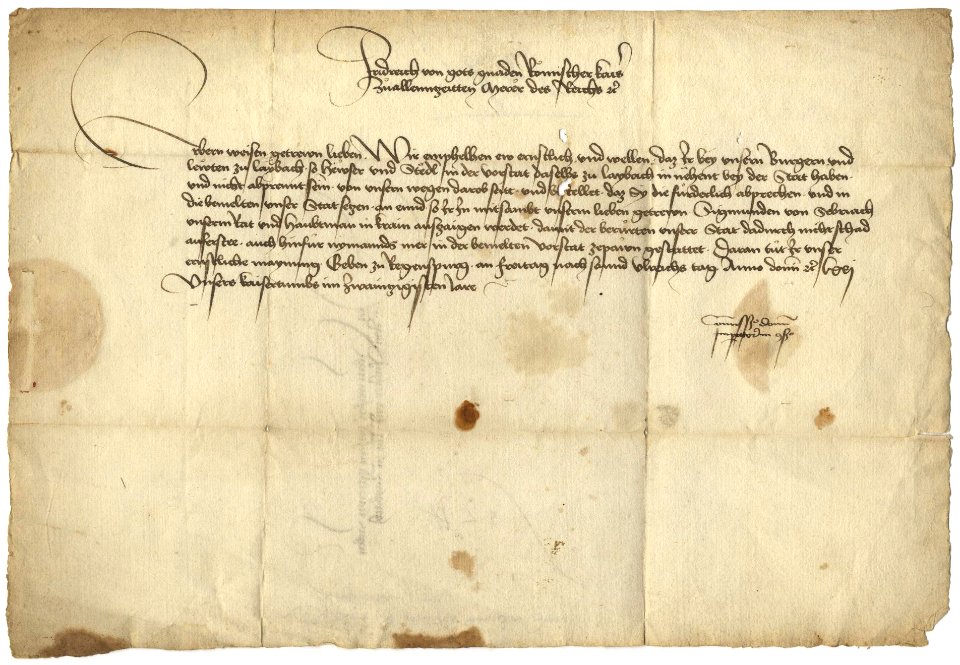 Fridreich von gots gnaden Römischer kaiser
zuallennczeitten Merer des Reichs etc
Erbern weisen getrewn lieben. Wir emphelhen ew ernstlich und wellen. daz Ir bey unsern Burgern und
lewten zu Laybach. so hewser und Stedl. in der vorstat daselbs zu Laybach zu nahent bey der Stat haben
und nicht abprennt sein. von unsern wegen darob seitt. und bestellet. daz Sy die fürderlich abprechen. und in
die benelten unser Stat seczen. an eind so Ir In mitsambt unserm lieben getrewn Sigmunden von Sebriach
unserm Rat und Haubtman in krain auszaigen werdet. damit der berürten unser Stat dadurch nicht schad
auferstee. auch hinfur nymannds mer in der benelten vorstat zepawn gestattet. Daran tüt Ir unser
ernstliche maynung. Geben zu Regenspurg. an freitag nach sannd Ulrichs tag. Anno domini etc lxxj
Unsers kaisertumbs im zwainczigisten Jare
Commissio domini
Imperatoris